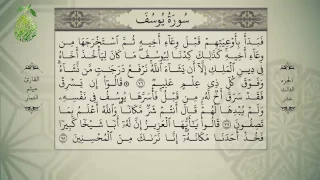 سُورَةُ يُوسُفَ
فَبَدَأَ بِأَوْعِيَتِهِمْ قَبْلَ وِعَاءِ أَخِيهِ ثُمَّ ٱسْتَخْرَجَهَا مِن
وِعَاءِ أَخِيهِ كَذَٰلِكَ كِدْنَا لِيُوسُفَ مَا كَانَ لِيَأْخُذَ أَخَاهُ
فِي دِينِ ٱلْمَلِكِ إِلَّا أَن يَشَاءَ ٱللَّهُ نَرْفَعُ دَرَجَٰتٍ مَّن نَّشَاءُ
وَفَوْقَ كُلِّ ذِي عِلْمٍ عَلِيمٌ ٧٦ قَالُوٓا۟ إِن يَسْرِقْ
فَقَدْ سَرَقَ أَخٌ لَّهُۥ مِن قَبْلُ فَأَسَرَّهَا يُوسُفُ فِي نَفْسِهِۦ
وَلَمْ يُبْدِهَا لَهُمْ قَالَ أَنتُمْ شَرٌّ مَّكَانًا وَٱللَّهُ أَعْلَمُ بِمَا
تَصِفُونَ ٧٧ قَالُوا۟ يَٰٓأَيُّهَا ٱلْعَزِيزُ إِنَّ لَهُۥٓ أَبًا شَيْخًا كَبِيرًا
فَخُذْ أَحَدَنَا مَكَانَهُۥٓ إِنَّا نَرَىٰكَ مِنَ ٱلْمُحْسِنِينَ ٧٨
الجزء
الثالث
عشر
القارئ
ميثم
التمار